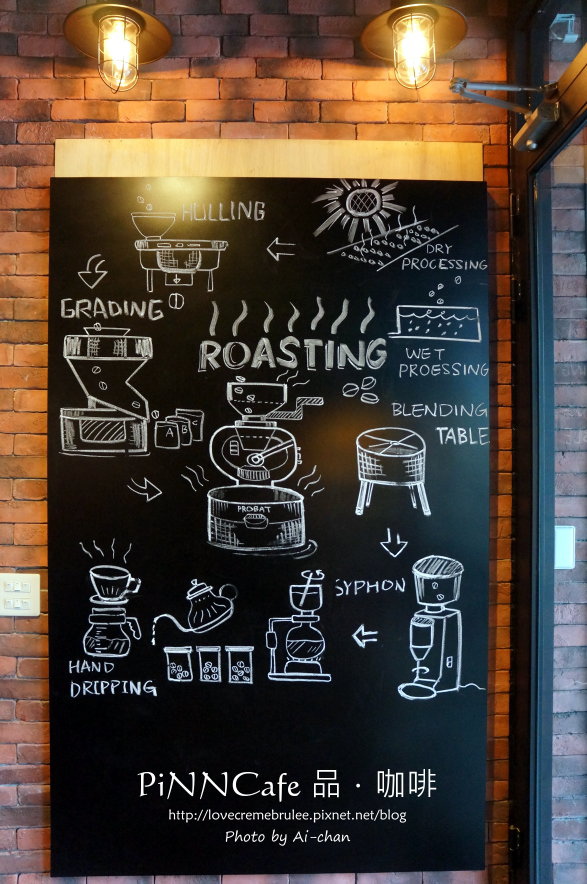 HULLING
DRY
PROCESSING
GRADING
ROASTING
WET
PROESSING
BLENDING
TABLE
A
B
C
PROBAT
SYPHON
HAND
DRIPPING
PiNNCafe 品・咖啡
http://lovecremebrulee.pixnet.net/blog
Photo by Ai-chan